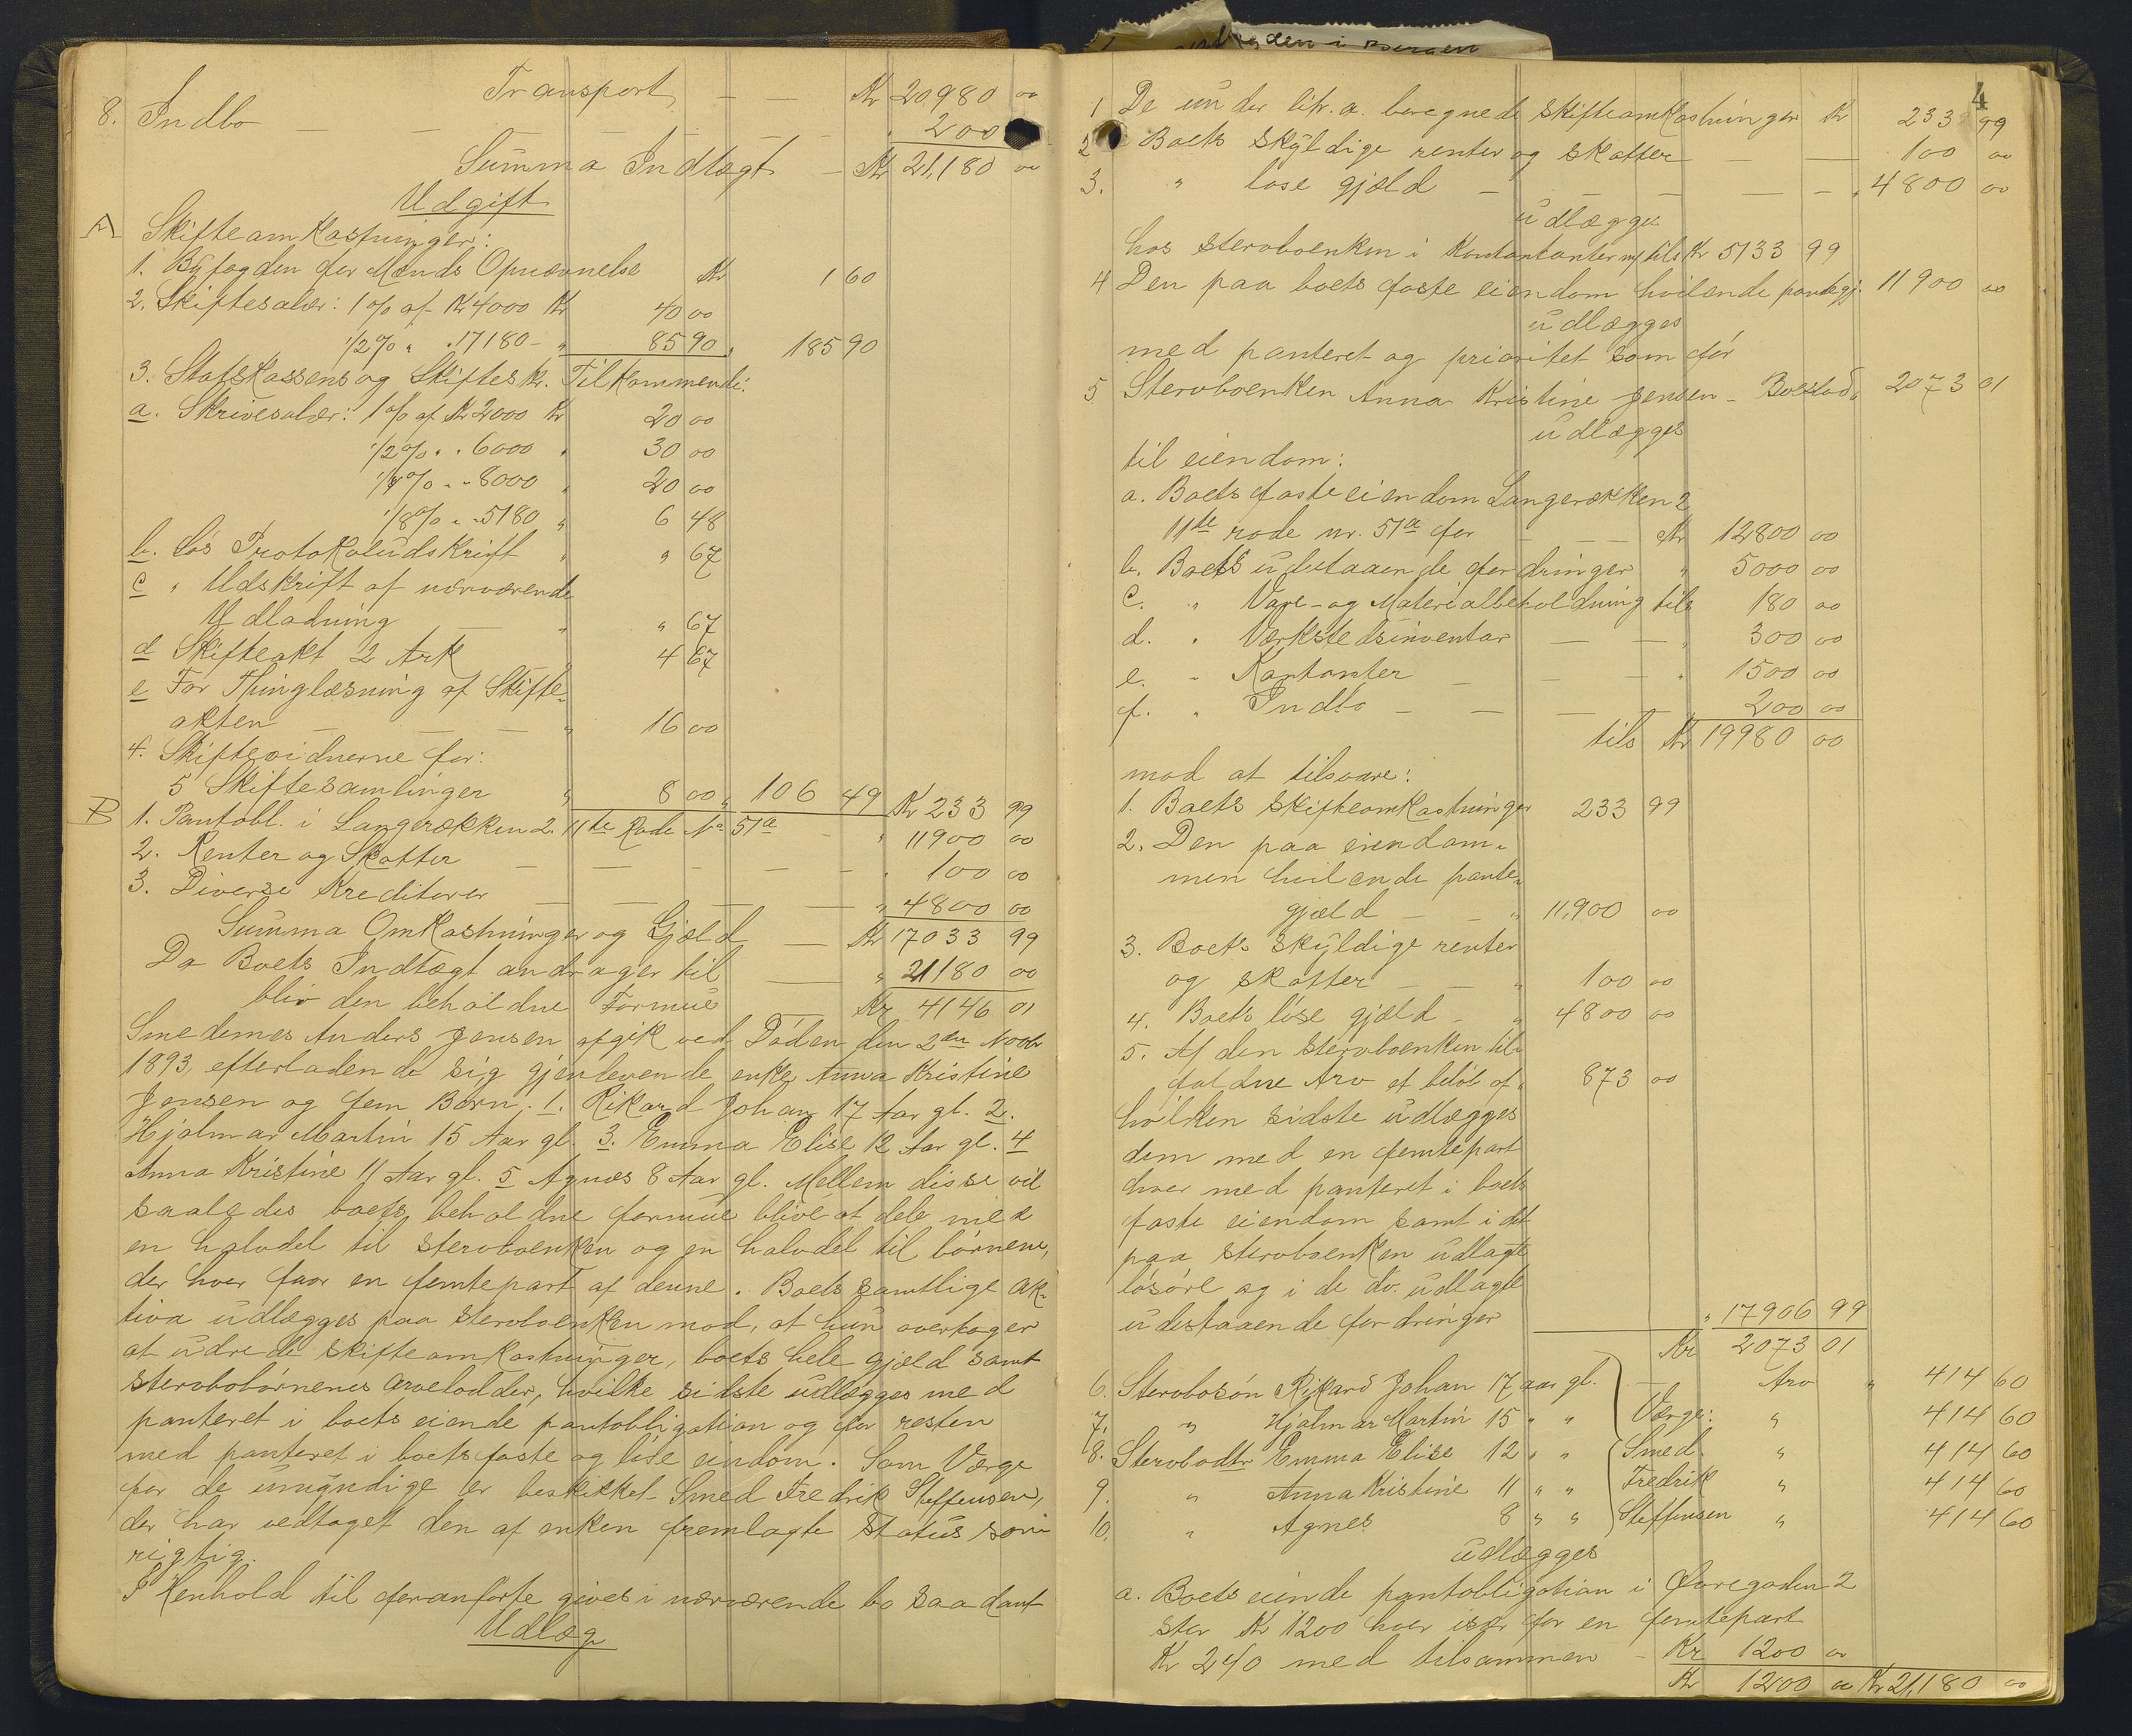 Transport — — Kr 20980 00
8. Indbo — — — — — — " 200
Summa Indtægt — Kr 21,180 00
Udgift
A Skifteomkostninger:
1. Byfogden for Mænds Opnævnelse Kr 1 60
2. Skiftesalær: 1 % af Kr 4000 Kr 40 00
1/2 % " " 17180 - " 85 90 " 185 90
3. Statskassens og Skiftesk. Tilkommende:
a. Skrivesalær: 1 % af Kr 2000 Kr 20 00
1/2 % " " 6000 " 30 00
1/4 % " " 8000 " 20 00
1/8 % " " 5180 " 6 48
b. løs Protokoludskrift " " 67
c " Udskrift af nærværende
Udlodning — " " 67
d Skifteakt 2 Ark " 4 67
e For Thinglæsning af Skifte-
akten — — — " 16 00
4. Skiftevidnerne for:
5 Skiftesamlinger " 8 00 " 106 49 Kr 233 99
B 1. Pantobl. i Langerækken 2. 11te Rode No 51a — " 11900 00
2. Renter og Skatter — — — — — " 100 00
3. Diverse Kreditorer — — — — " 4800 00
Summa Omkostninger og Gjæld — Kr 17033 99
Da Boets Indtægt andrager til — " 21180 00
bliv den beholdne Formue Kr 4146 01
Smedemes Anders Jensen afgik ved Døden den 2den Novbr
1893, efterladende sig gjenlevende enke Anna Kristine
Jensen og fem Børn: 1. Rikard Johan 17 Aar gl. 2.
Hjalmar Martin 15 Aar gl. 3. Emma Elise 12 Aar gl. 4
Anna Kristine 11 Aar gl. 5 Agnes 8 Aar gl. Mellem disse vil
saaledes boets beholdne formue blive at dele med
en halvdel til stervboenken og en halvdel til børnene,
der hver faar en femtepart af denne. Boets samtlige ak-
tiva udlægges paa stervboenken mod, at hun overtager
at udrede skifteomkostninger, boets hele gjæld samt
stervbobørnenes arvelodder, hvilke sidste udlægges med
panteret i boets eiende pantobligation og for resten
med panteret i boets faste og løse eiendom. Som Værge
for de umyndige er beskikket Smed Fredrik Steffensen,
der har vedtaget den af enken fremlagte Status som
rigtig.
I Henhold til foranførte gives i nærværende bo saadant
Udlæg
4
1 De under litr. a. beregnede skifteomkostninger Kr 233 99
2 Boets skyldige renter og skatter — — 100 00
3. " løse gjæld — — — — — " 4800 00
udlægges
hos stervboenken i Kontanter m/ tils Kr 5133 99
4 Den paa boets faste eiendom hvilende pantegj. 11900 00
udlægges
med panteret og prioritet som før
5 Stervboenken Anna Kristine Jensen - Boeslod " 2073 01
udlægges
til eiendom:
a. Boets faste eiendom Langerækken 2
11te rode nr. 51a for — — Kr 12800 00
b. Boets udestaaende fordringer " 5000 00
c. " Vare- og Materialbeholdning tils 180 00
d. " Værkstedsinventar — — " 300 00
e. " Kontanter — — — " 1500 00
f. " Indbo — — — — 200 00
tils Kr 19980 00
mod at tilsvare:
1. Boets skifteomkostninger 233 99
2. Den paa eiendom-
men hvilende pante-
gjæld — — " 11,900 00
3. Boets skyldige renter
og skatter — — " 100 00
4. Boets løse gjæld — " 4800 00
5. Af den stervboenken til-
faldne Arv et beløb af " 873 00
hvilken sidste udlægges
dem med en femtepart
hver med panteret i boets
faste eiendom samt i det
paa stervboenken udlagte
løsøre og i de do. udlagte
udestaaende fordringer " 17906 99
Kr 2073 01
6. Stervbosøn Rikard Johan 17 aar gl. — Arv " 414 60
7. " Hjalmar Martin 15 " " Værge: " 414 60
8. Stervbodtr Emma Elise 12 " " Smed " 414 60
9. " Anna Kristine 11 " " Fredrik " 414 60
10. " Agnes 8 " " Steffensen " 414 60
udlægges
a. Boets eiende pantobligation i Øvregaden 2
stor Kr 1200 hver især for en femtepart
Kr 240 med tilsammen - Kr 1200 00
Kr 1200 00 Kr 21,180 00